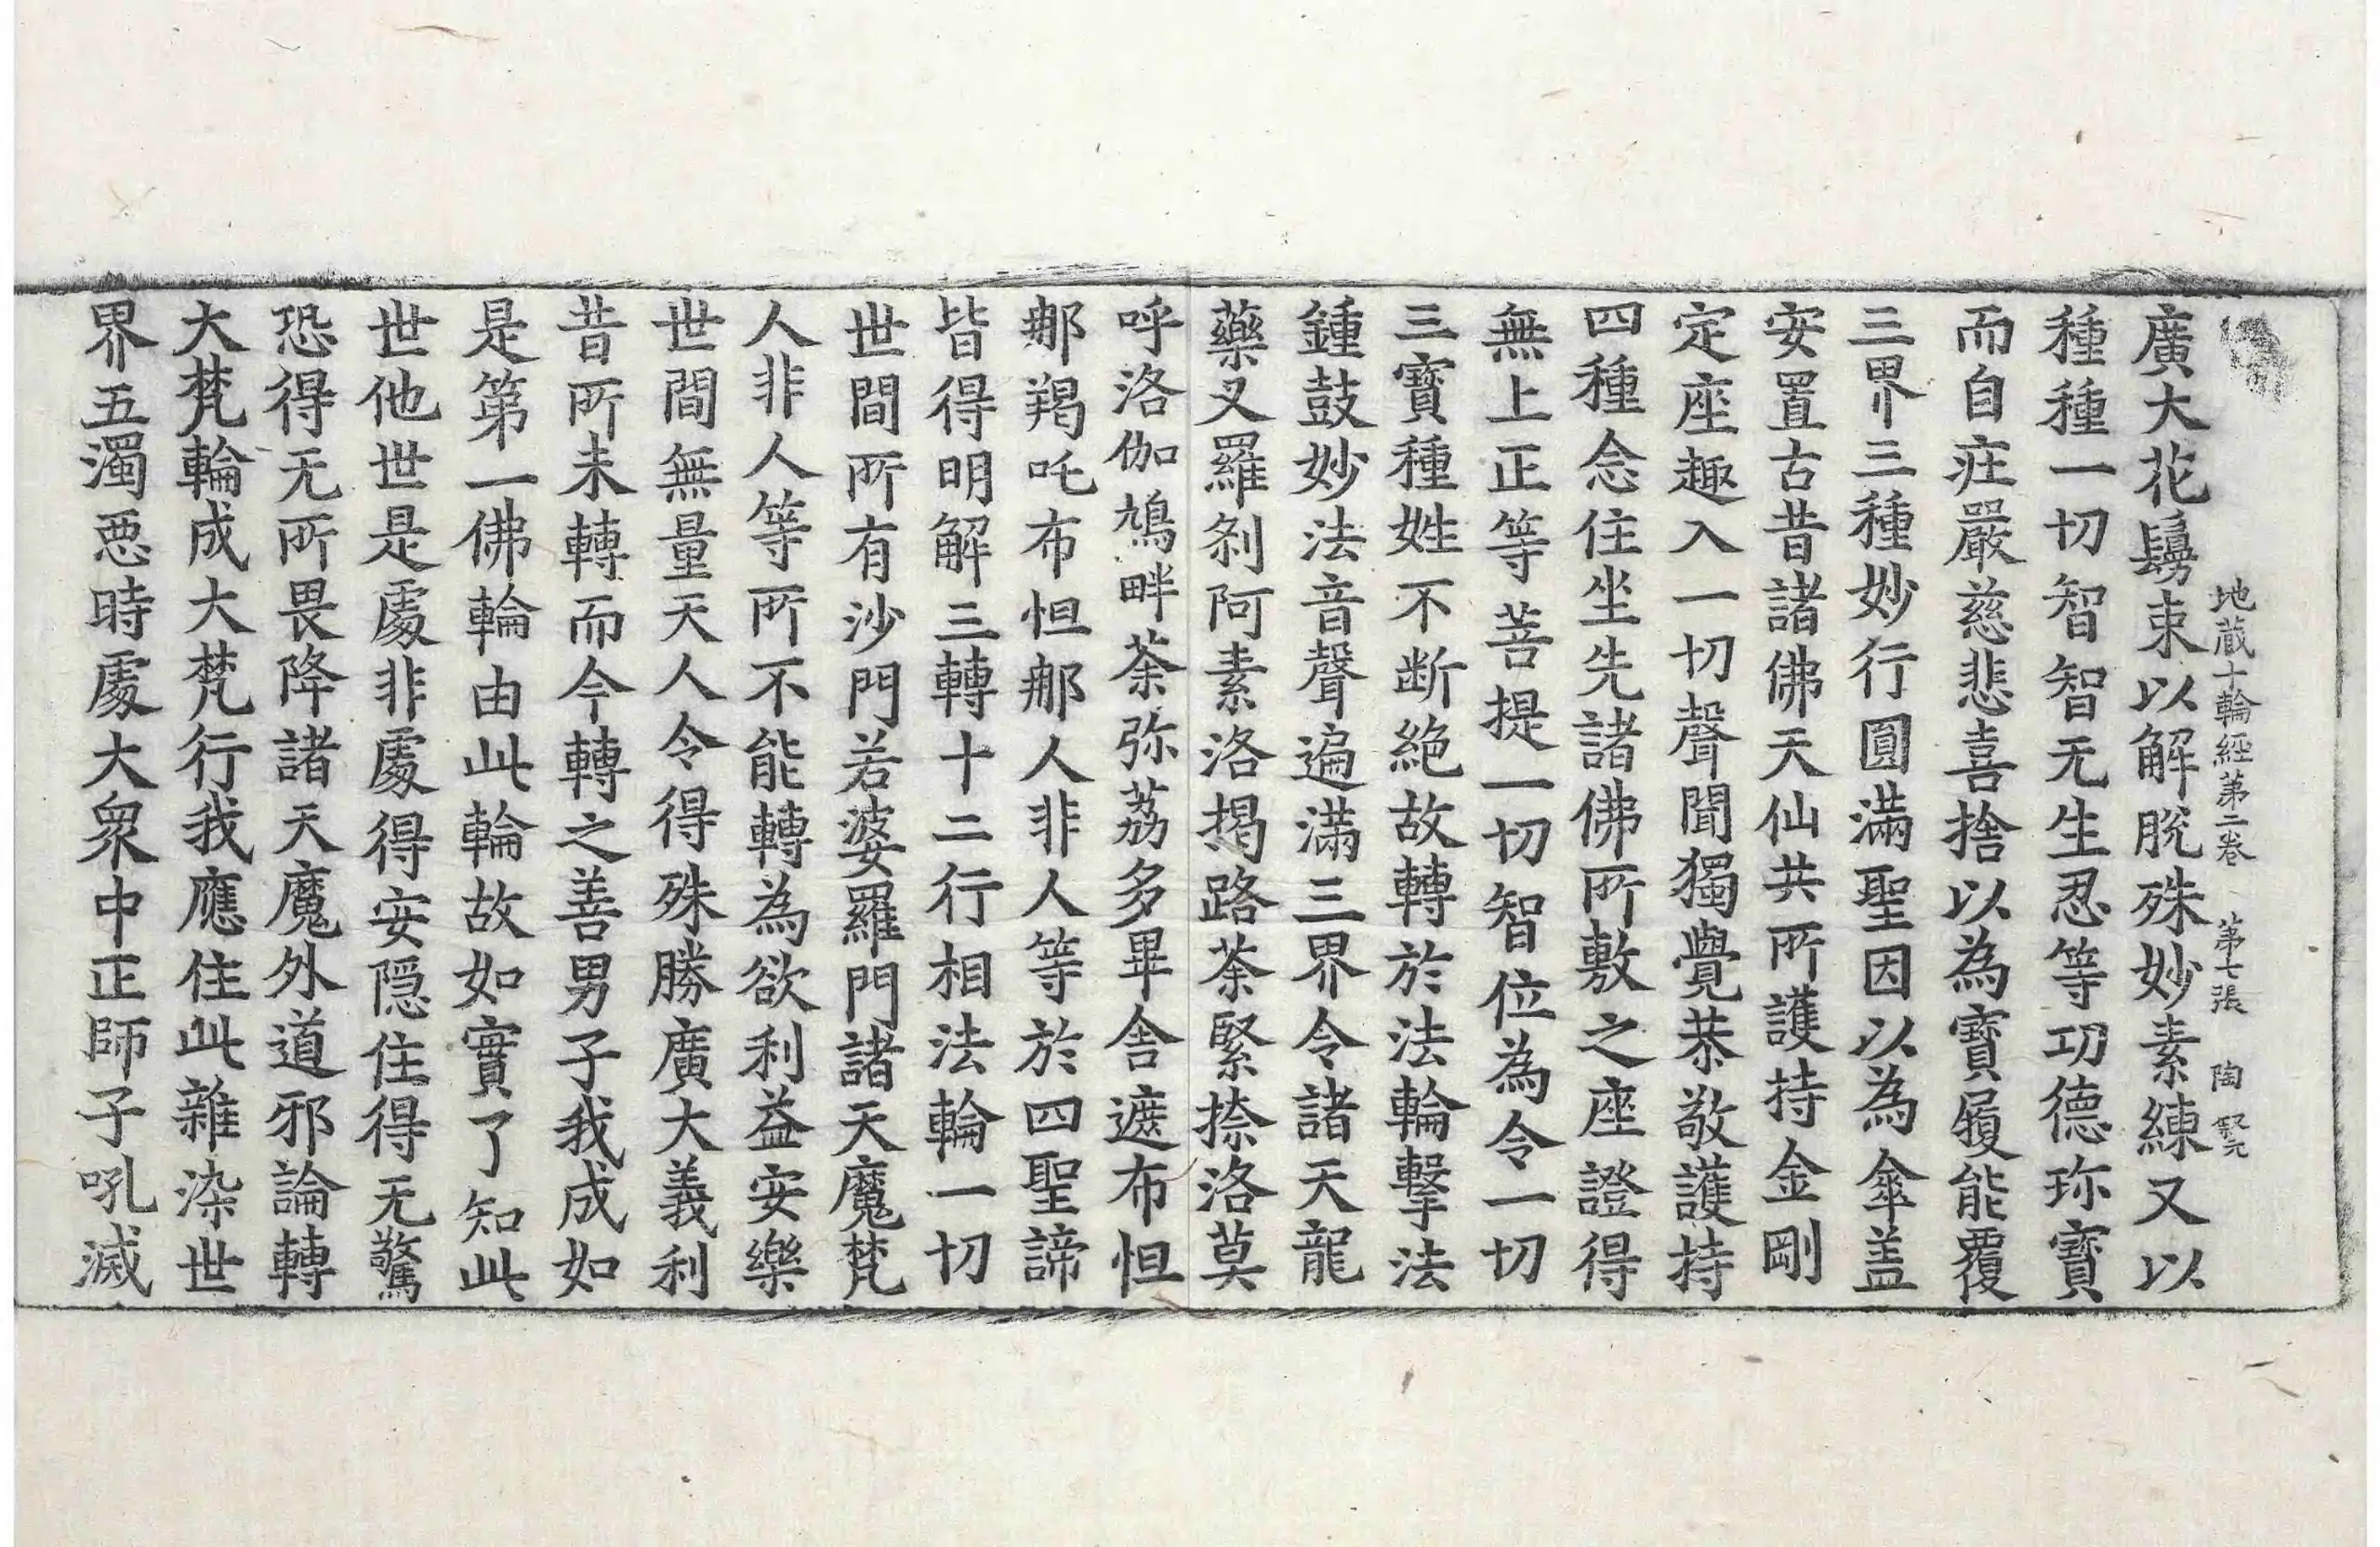 地蔵十輪經苐二卷 苐七張 陶
廣大花鬘束以解脫殊妙素練又以
種種一切智智无生忍等功德珎寶
而自疘嚴慈悲喜捨以為寶屐能覆
三界三種妙行圓滿聖因以為傘盖
安置古昔諸佛天仙共所護持金剛
定座趣入一切聲聞獨覺恭敬護持
四種念住坐先諸佛所敷之座證得
無上正等菩提一切智位為令一切
三寶種姓不断絶故轉於法輪擊法
鍾鼓妙法音聲遍滿三界令諸天龍
藥叉羅刹阿素洛揭路荼緊捺洛莫
呼洛伽鳩畔荼弥荔多畢舎遮布怛
那羯吒布怛那人非人等於四聖諦
皆得明解三轉十二行相法輪一切
世間所有沙門若婆羅門諸天魔梵
人非人等所不能轉為欲利益安樂
世間無量天人令得殊勝廣大義利
昔所未轉而今轉之善男子我成如
是第一佛輪由此輪故如實了知此
世他世是處非處得安隱住得无驚
恐得无所畏降諸天魔外道邪論轉
大梵輪成大梵行我應住此雜染世
界五濁惡時處大衆中正師子吼滅